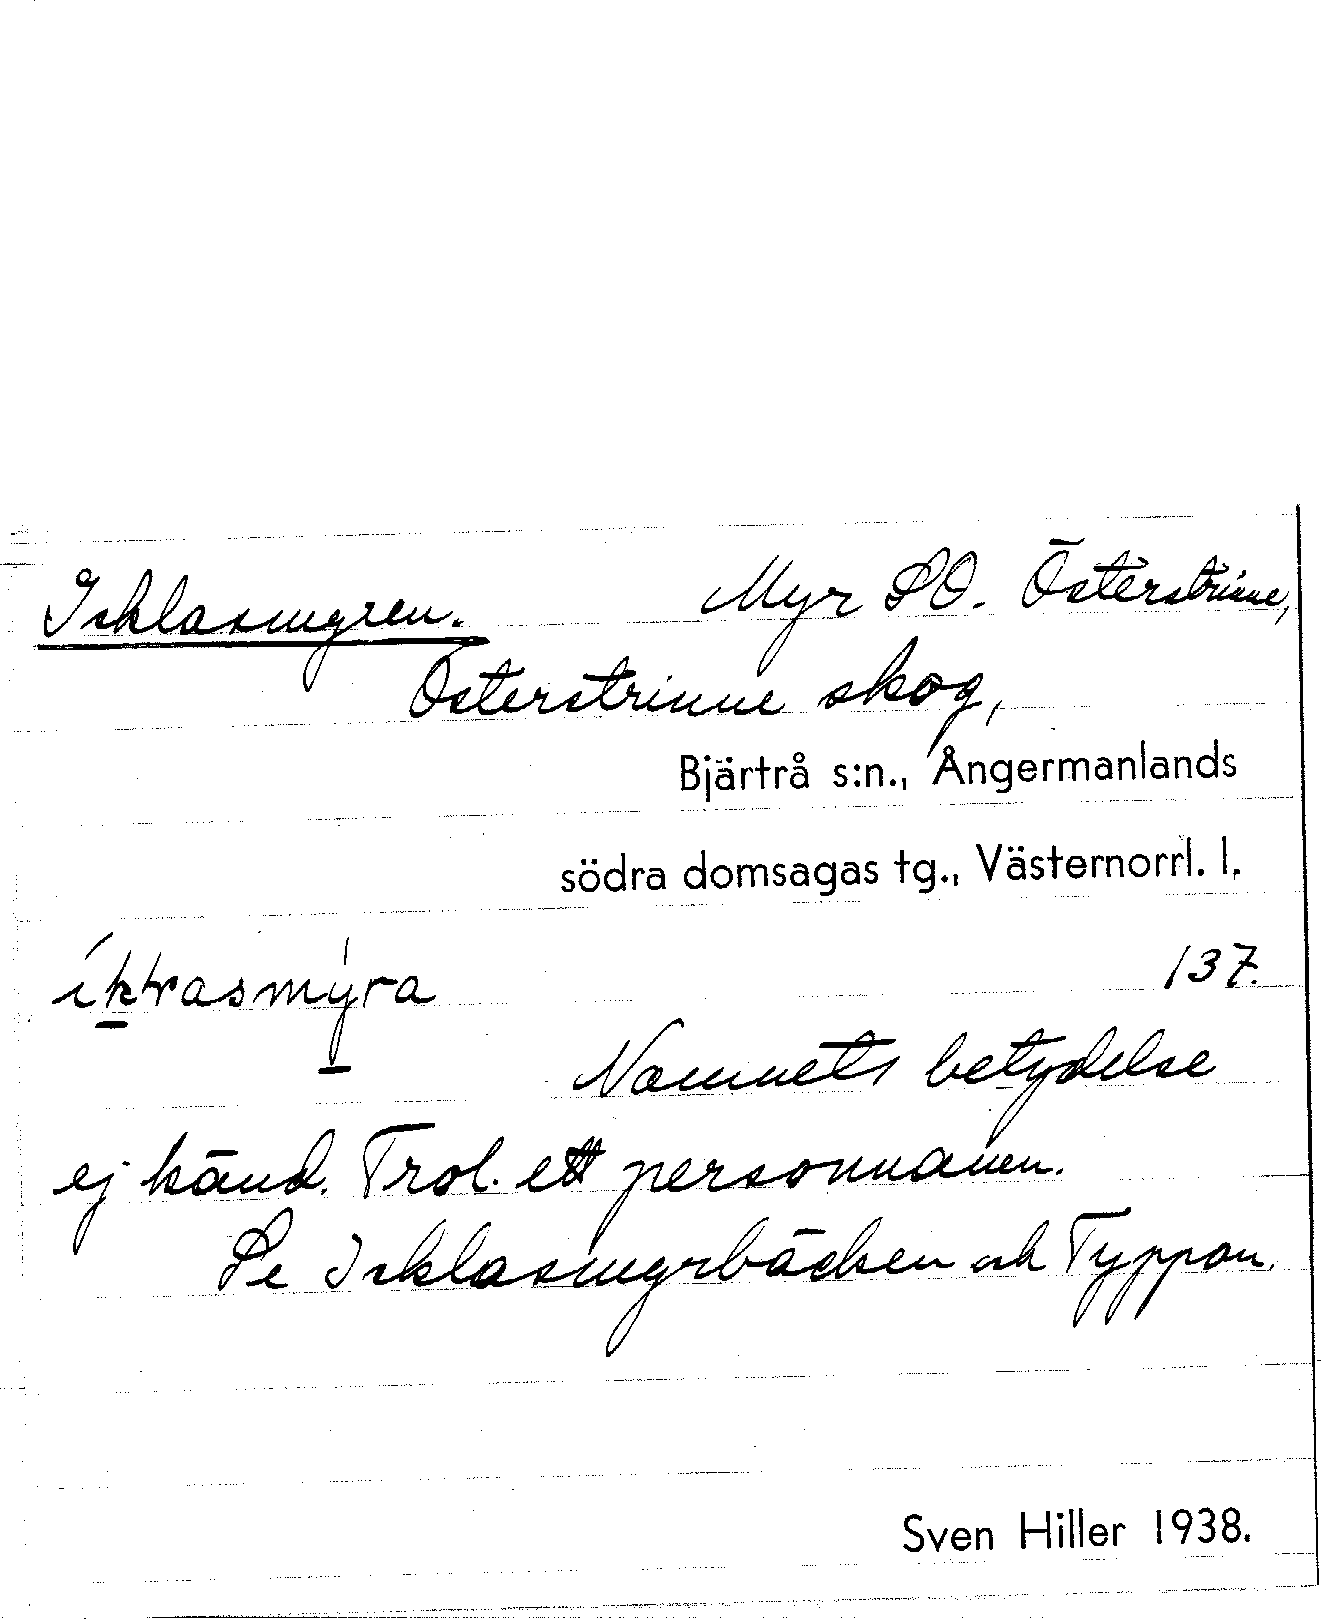 Isklasmyren. Myr SO. Österstrinne,
Österstrinne skog,
Bjärtrå s:n., Ångermanlands
södra domsagas tg., Västernorrl. l.
137.
Namnets betydelse
ej känd. Trol. ett personnamn.
Se Isklasmyrbäcken och Typpan.
Sven Hiller 1938.